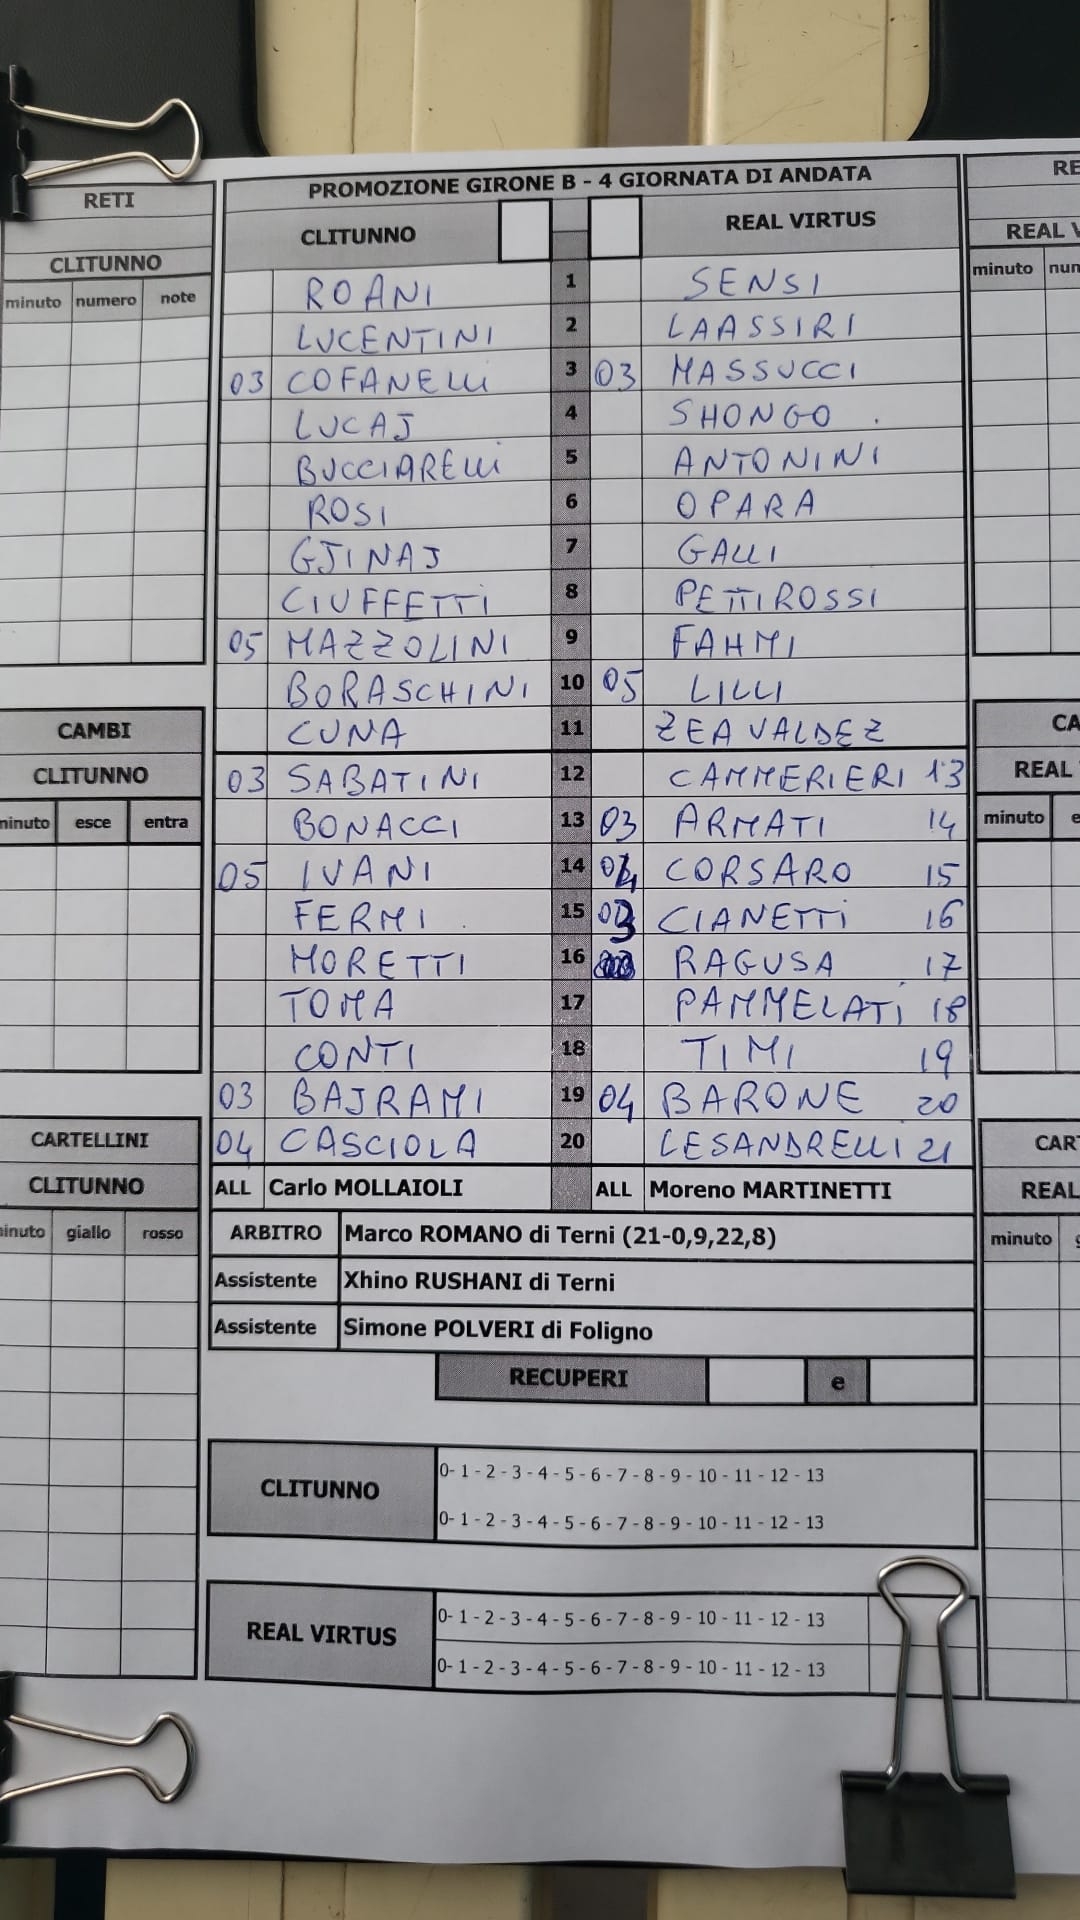 PROMOZIONE GIRONE B - 4 GIORNATA DI ANDATA
CLITUNNO REAL VIRTUS
ROANI 1 SENSI
LUCENTINI 2 LAASSIRI
03 COFANELLI 3 03 MASSUCCI
LUCAJ 4 SHONGO
BUCCIARELLI 5 ANTONINI
ROSI 6 OPARA
GJINAJ 7 GALLI
CIUFFETTI 8 PETTIROSSI
05 MAZZOLINI 9 FAHMI
BORASCHINI 10 05 LILLI
CUNA 11 ZEA VALDEZ
03 SABATINI 12 CAMMERIERI 13
BONACCI 13 03 ARMATI 14
05 IVANI 14 04 CORSARO 15
FERMI 15 03 CIANETTI 16
MORETTI 16 RAGUSA 17
TOMA 17 PAMMELATI 18
CONTI 18 TIMI 19
03 BAJRAMI 19 04 BARONE 20
04 CASCIOLA 20 LESANDRELLI 21
ALL Carlo MOLLAIOLI ALL Moreno MARTINETTI
ARBITRO Marco ROMANO di Terni (21-0,9,22,8)
Assistente Xhino RUSHANI di Terni
Assistente Simone POLVERI di Foligno
RECUPERI e
CLITUNNO
0- 1 - 2 - 3 - 4 - 5 - 6 - 7 - 8 - 9 - 10 - 11 - 12 - 13
0- 1 - 2 - 3 - 4 - 5 - 6 - 7 - 8 - 9 - 10 - 11 - 12 - 13
REAL VIRTUS
0- 1 - 2 - 3 - 4 - 5 - 6 - 7 - 8 - 9 - 10 - 11 - 12 - 13
0- 1 - 2 - 3 - 4 - 5 - 6 - 7 - 8 - 9 - 10 - 11 - 12 - 13
RETI
CLITUNNO
minuto numero note
CAMBI
CLITUNNO
minuto esce entra
CARTELLINI
CLITUNNO
minuto giallo rosso
RE
REAL V
minuto num
CA
REAL
minuto e
CAR
REAL
minuto g